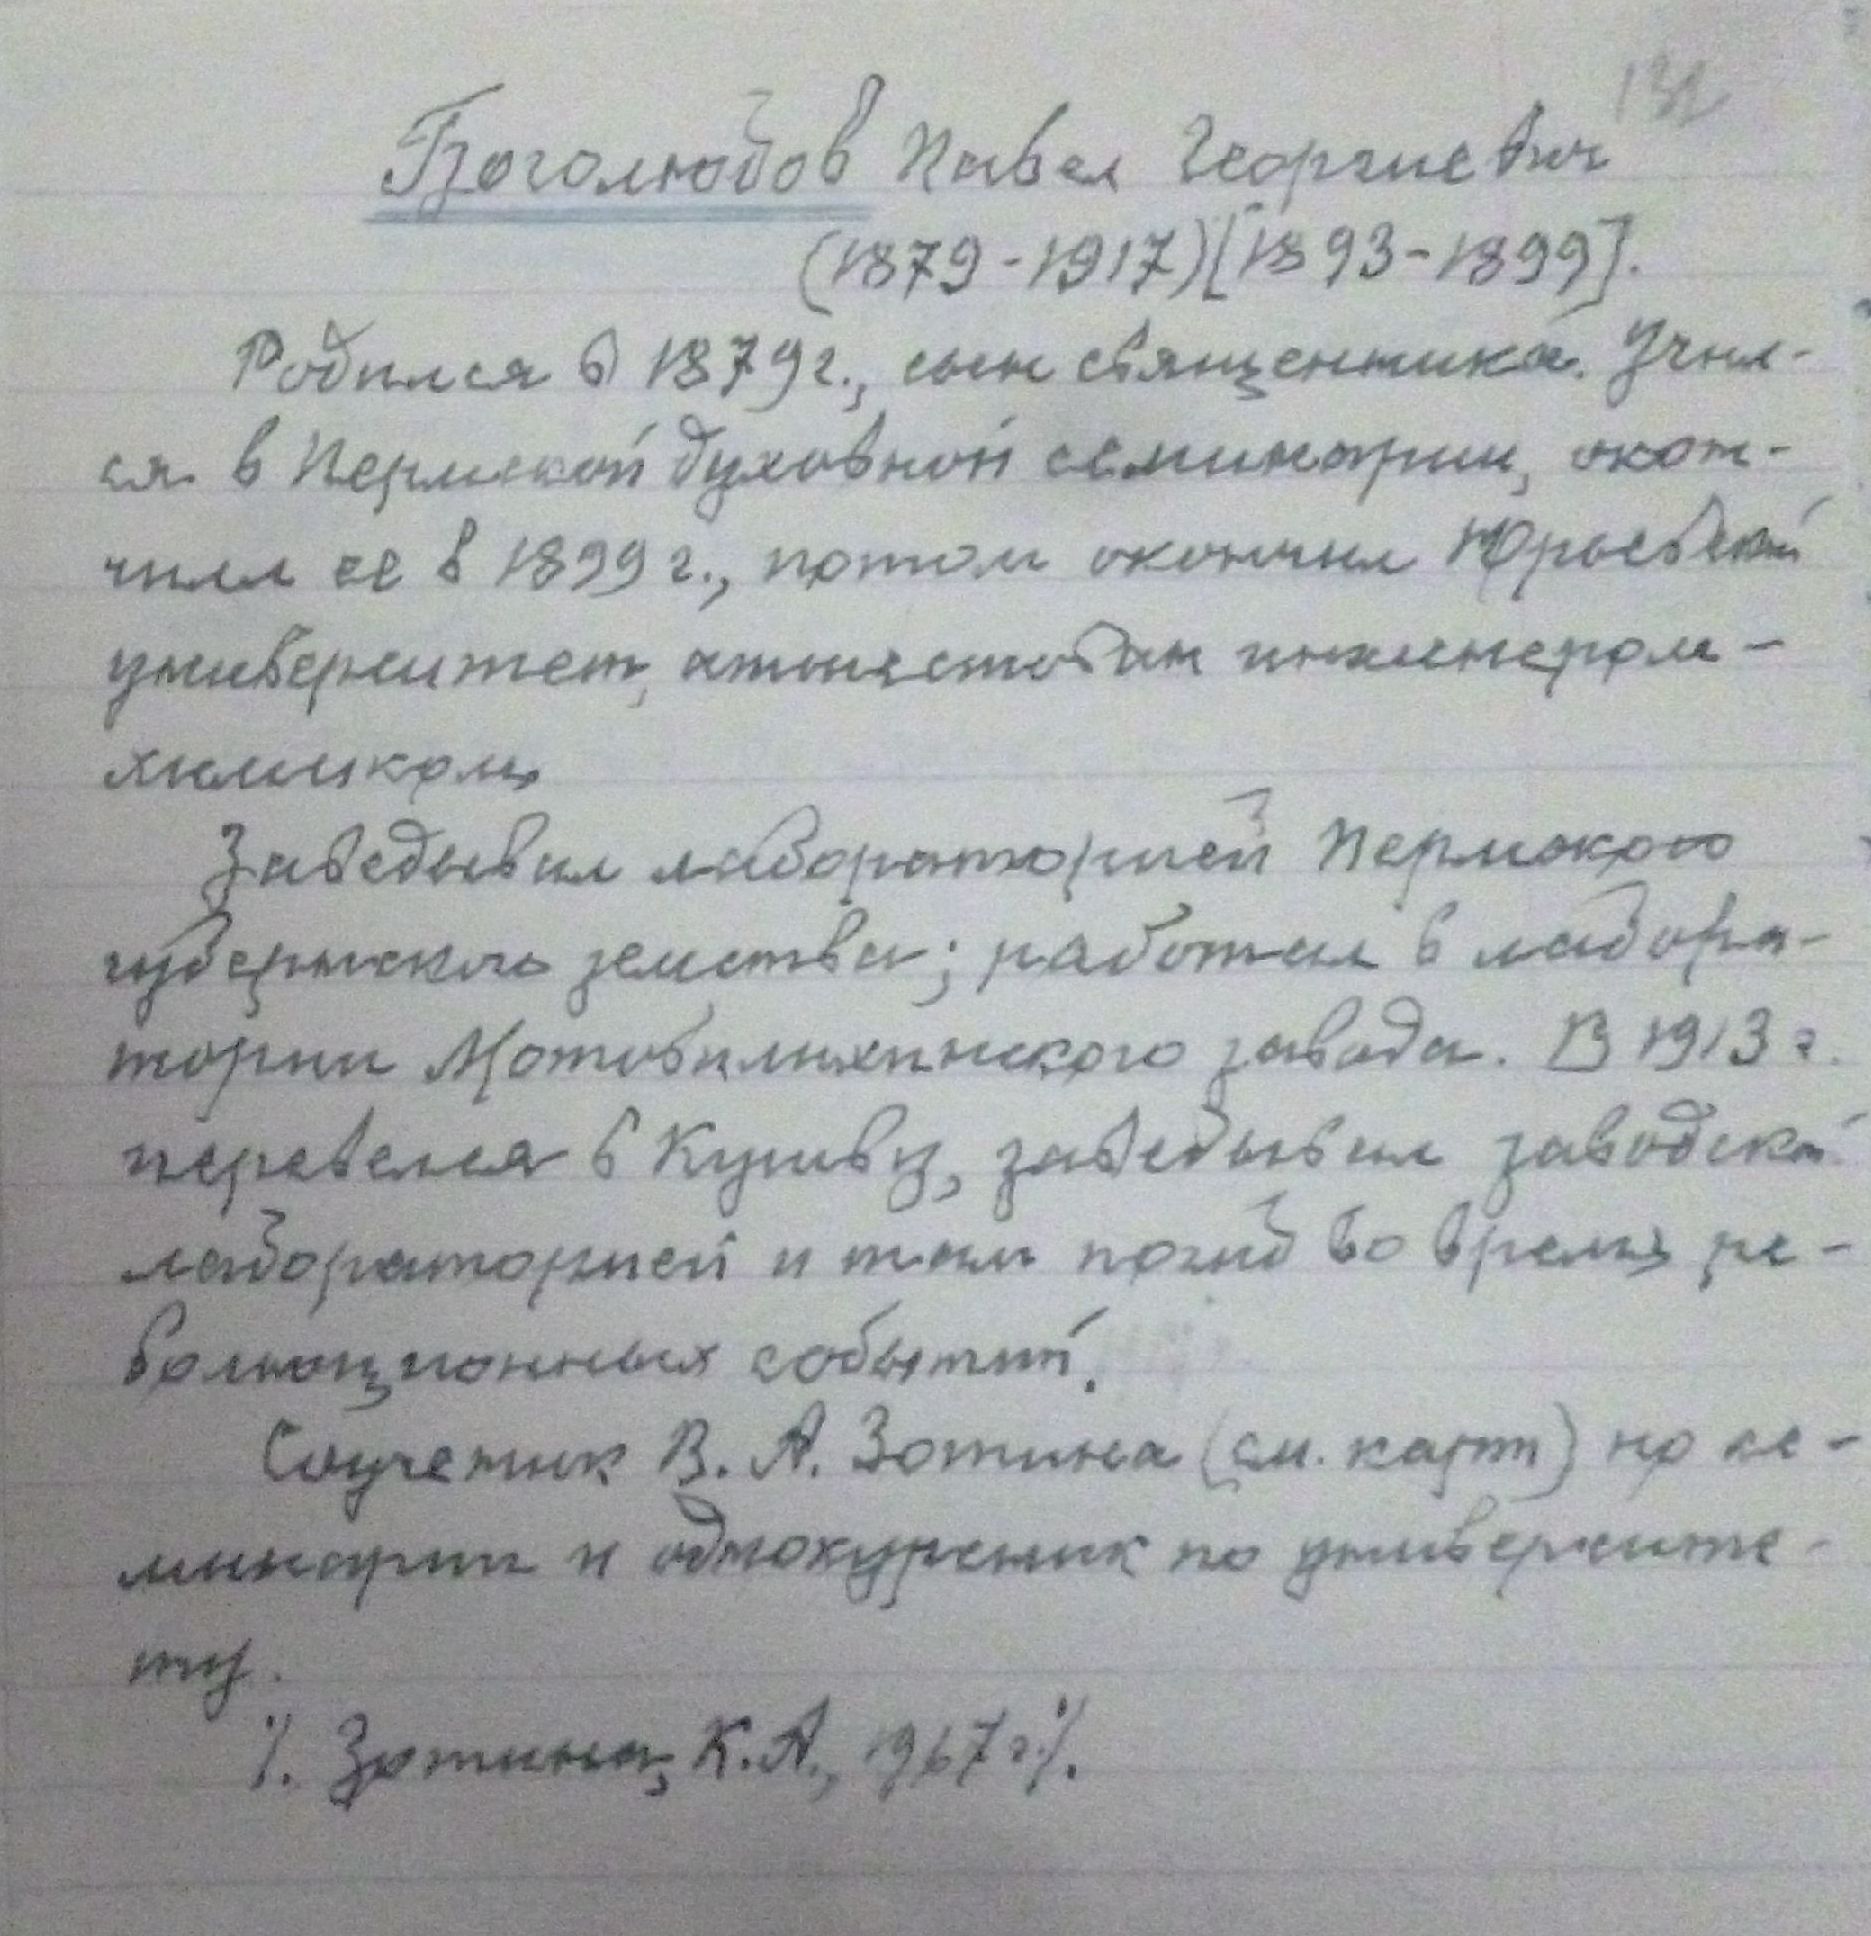 Боголюбов Павел Георгиевич
(1879-1917)[1893-1899].
Родился в 1879 г., сын священника. Учил-
ся в Пермской духовной семинарии, окон-
чил ее в 1899 г., потом окончил Юрьевский
университет, аттестован инженером-
химиком.
Заведывал лабораторией Пермского
губернского земства; работал в лабора-
тории Мотовилихинского завода. В 1913 г.
перевелся в Кушву, заведывал заводской
лабораторией и там погиб во время ре-
волюционных событий.
Соученик В. А. Зотина (см. карт) по се-
минарии и однокурсник по университе-
ту.
/. Зотина, К.А., 1967 г./.